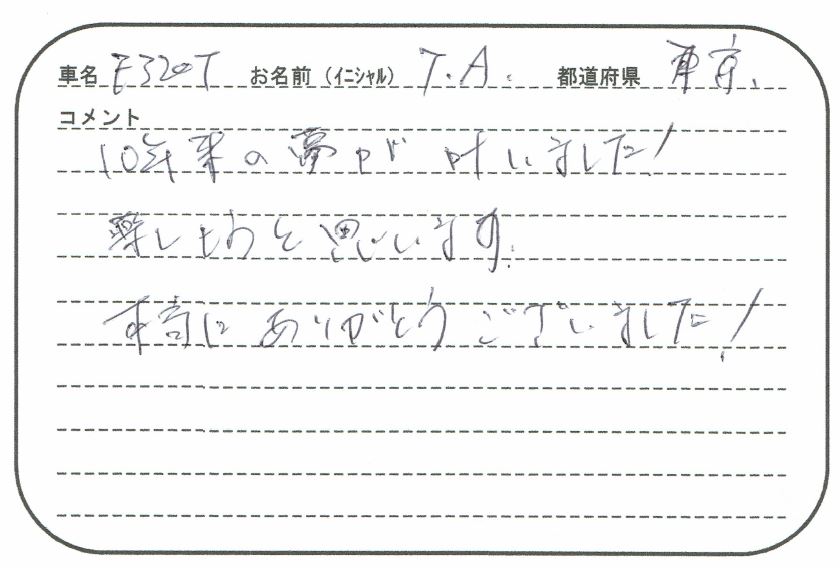 車名 E320T お名前（ｲﾆｼｬﾙ） T.A. 都道府県 東京.
コメント
10年来の夢が叶いました!
楽しもうと思います.
本当にありがとうございました!